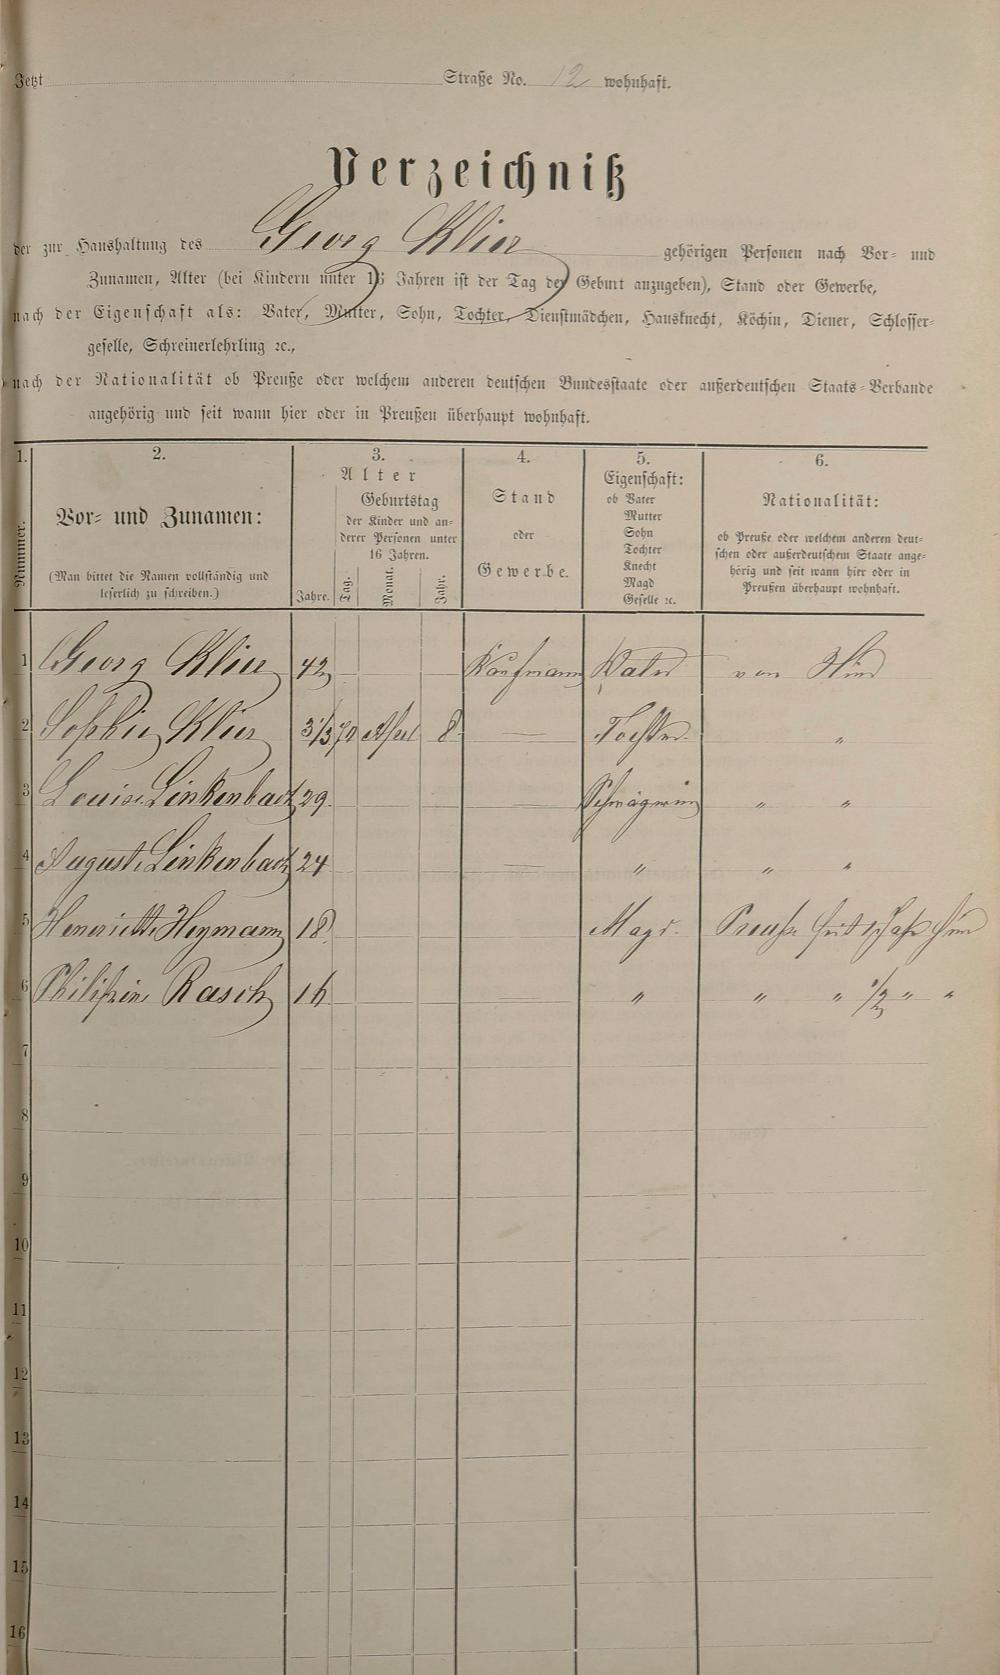 Jetzt Straße No. 12 wohnhaft.
Verzeichniß
der zur Haushaltung des Georg Klier gehörigen Personen nach Vor- und
Zunamen, Alter (bei Kindern unter 16 Jahren ist der Tag der Geburt anzugeben), Stand oder Gewerbe,
nach der Eigenschaft als: Vater, Mutter, Sohn, Tochter, Dienstmädchen, Hausknecht, Köchin, Diener, Schlosser-
geselle, Schreinerlehrling ꝛc.,
nach der Nationalität ob Preuße oder welchem anderen deutschen Bundesstaate oder außerdeutschen Staats-Verbande
angehörig und seit wann hier oder in Preußen überhaupt wohnhaft.
1. 2. 3. 4. 5. 6.
Nummer.
Vor- und Zunamen:
(Man bittet die Namen vollständig und
leserlich zu schreiben.)
Alter
Jahre.
Geburtstag
der Kinder und an-
derer Personen unter
16 Jahren.
Tag. Monat. Jahr.
Stand
oder
Gewerbe.
Eigenschaft:
ob Vater
Mutter
Sohn
Tochter
Knecht
Magd
Geselle ꝛc.
Nationalität:
ob Preuße oder welchem anderen deut-
schen oder außerdeutschem Staate ange-
hörig und seit wann hier oder in
Preußen überhaupt wohnhaft.
1 Georg Klier 42 Kaufmann Vater von Hier
2 Sophie Klier April 8 Tochter "
3 Louise Linkenbach 29 — Schwägerin " "
4 Auguste Linkenbach 24 — " " "
5 Henriette Heymann 18 Magd. Preuße seit 1 Jahr hier
6 Philippine Rasch 16 — " " " 1/2 " "
7
8
9
10
11
12
13
14
15
16